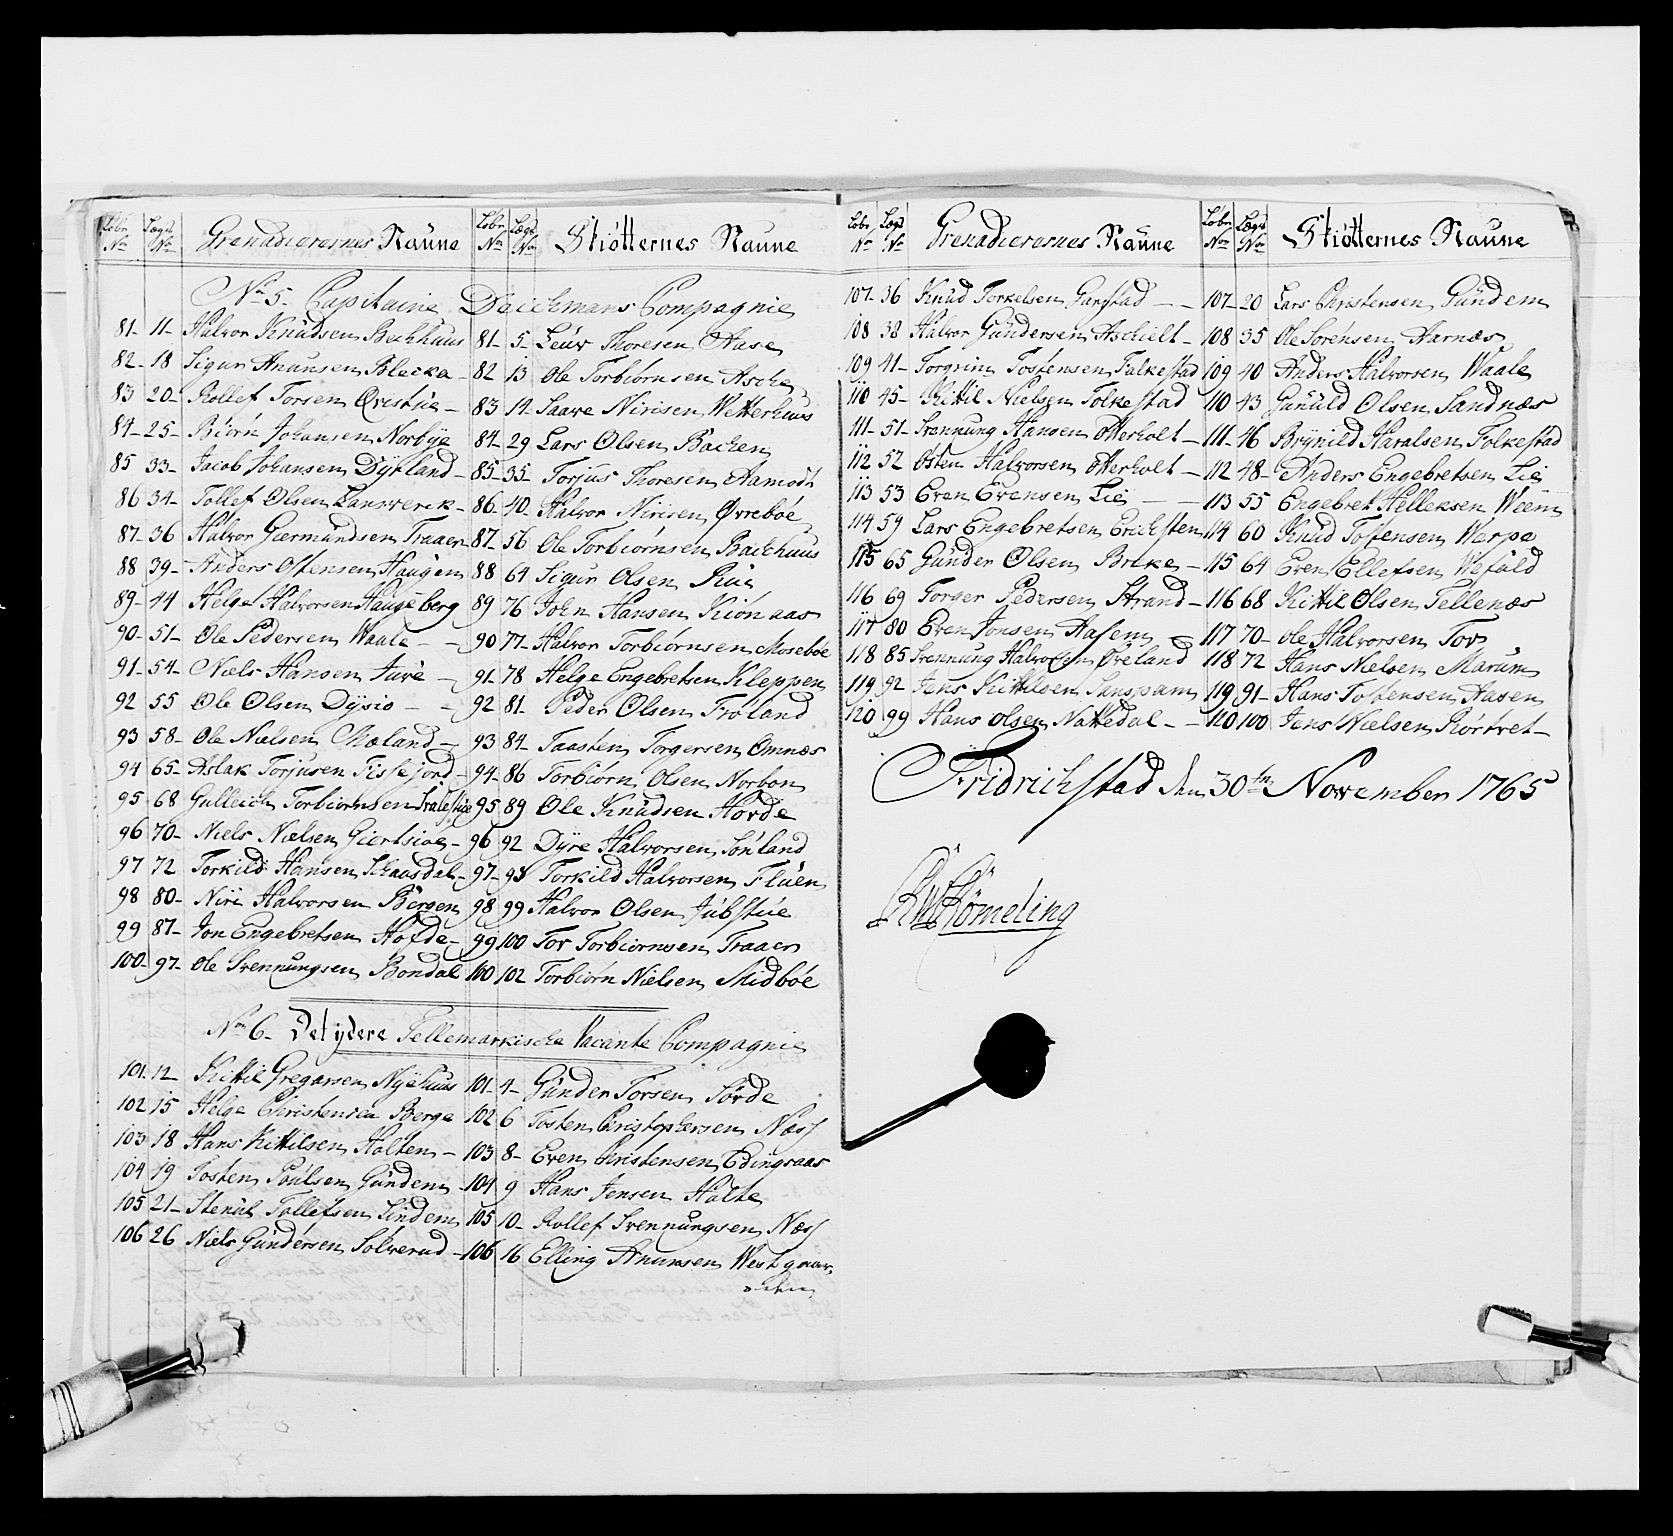 Løbe No Lægs No Grenadierernes Naune Løbe No Lægs No Skiøtternes Naune
No 5. Capitaine Deichmans Compagnie
81- 11- Halvor Knudsen Bechhuus 81- 5- Leuv Thoresen Aase
82- 18 Sigur Anunsen Blecka - 82 13 Ole Torbiörnsen Asche
83 20- Rollef Torsen Qvistue - 83 14- Saave Nirisen Wetterhuus
84- 25- Biörn Johansen Norbye 84- 29 Lars Olsen Backen
85 33- Jacob Johansen Dyrland - 85- 35- Torjus Thoresen Aamodt
86 34- Tollef Olsen Lansverck - 86- 40- Halvor Nirisen Øvreböe
87- 36 Halvor Giermundsen Traaen 87- 56 Ole Torbiörnsen Backhuus
88 39- Anders Ostensen Haugen 88 64 Sigur Olsen Rue
89- 44 Helge Halvorsen Haugeberg 89 76 John Hansen Kiönaas
90- 51- Ole Pedersen Waale - - 90 77- Halvor Torbiörnsen Moseböe
91- 54- Niels Hansen Jure - 91- 78 Helge Engebretsen Kleppen
92 55 Ole Olsen Dysio - - 92 81- Peder Olsen Fröland
93 58- Ole Nielsen Mæland - 93 84- Taasten Torgersen Omnæs
94 65- Aslak Torjusen Fissejord - 94- 86 Torbiorn Olsen Norbon
95 68 Gulleich Torbiörnsen 95 89 Ole Knudsen Hörde
96 70- Niels Nielsen Giertsiöe - 96 92 Dyre Halvorsen Sönland
97 72 Torkild Hansen Schaasdal - 97- 95 Torkild Halvorsen Fluen
98 80- Niri Halvorsen Bergen 98 99 Halvor Olsen Jubstue
99 87- Jon Engebretsen Hofde - 99 100 Tor Torbiörnsen Traaen
100- 97- Ole Svennungsen Bondal 100 102 Torbiörn Nielsen Midböe
No 6- Det ydere Tellemarkische Vacante Compagnie
101- 12- Kittil Gregarsen Nyehuus 101- 4- Gunder Torsen Sörde
102 15 Helge Christensen Berge 102 6 Tosten Christophersen Næss
103 18 Hans Kittilsen Holten - 103 8- Even Christensen Edingsaas
104 19 Tosten Poulsen Gundem - 104 9 Hans Jensen Holte
105 21- Stenul Tollefsen Lindem 105 10- Rollef Svennungsen Næss
106 26 Niels Gundersen Solverud - 106 16 Elling Anunsen Westgaar
Løbe No Lægs No Grenadierernes Naune Løbe No Lægs No Skiötternes Naune
107- 36 Knud Torkelsen Garstad - - 107- 20 Lars Christensen Gundem
108 38 Halvor Gundersen Aschielt - 108 35 Ole Sörensen Aarnæs
109 41- Torgrim Tostensen Falkestad 109 40 Anders Halvorsen Waale
110 45- Kittil Nielsen Folkestad 110 43 Gunuld Olsen Sandnæs
111- 51- Svennung Hansen Otterholt - 111- 46 Brynild Haralsen Folkestad
112 52 Osten Halvorsen Otterholt - 112 48- Anders Engebretsen Lie
113 53 Even Evensen Lie - - 113 55 Engebret Helleksen Weem
114 59 Lars Engebretsen Erichsten 114 60 Knud Tostensen Warpe
115 65 Gunder Olsen Breke - 115 64 Even Ellefsen Wefald
116 69 Torger Pedersen Strand - 116 68 Kittil Olsen Tellenæs
117 80 Even Jonsen Aasem - 117 70- Ole Halvorsen Tov
118 85 Svennung Halvorsen Øreland 118 72 Hans Nielsen Marum
119 92 Jens Kittilsen Sanspam 119 91- Hans Tostensen Aasen
120 99 Hans Olsen Nattedal - - 120 100 Jens Nielsen Rörtvet -
Fridrichstad den 30te November 1765
Römeling